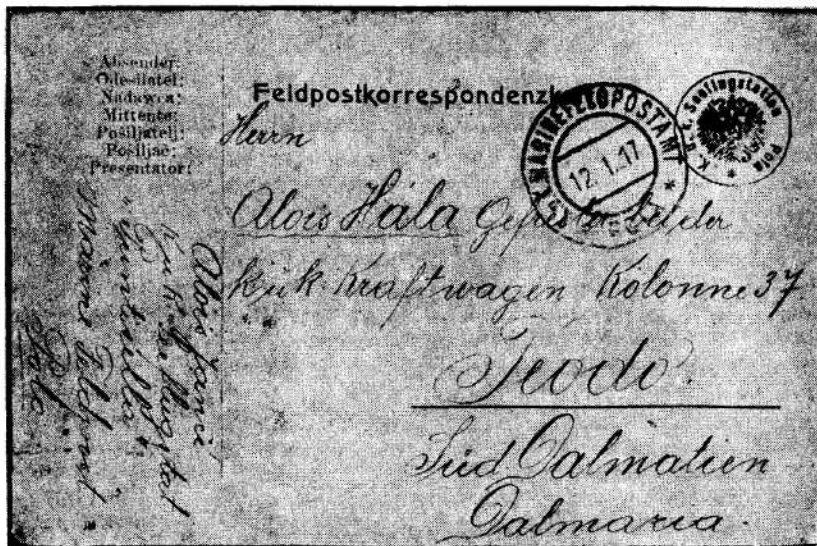 Absender:
Odesílatel:
Nadawca:
Mittente:
Pošiljatelj:
Pošiljač:
Presentator:
Feldpostkorrespondenzk
K.u.K. MARINEFELDPOSTAMT
12.1.17
K. u. k. Seeflugstation Pola
Herrn
Alois Hála
K.u.k. Kraftwagen Kolonne 37
Teodo.
Süd Dalmatien
Dalmazia.
Alois
Marine Feldpost
Pola